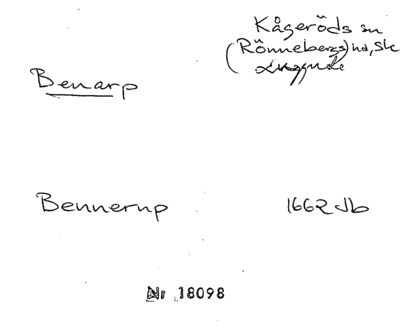 Kågeröds sn
(Rönnebergs) hd, Sk
Luggude
Benarp
Bennerup 1662 Jb
Nr 18098